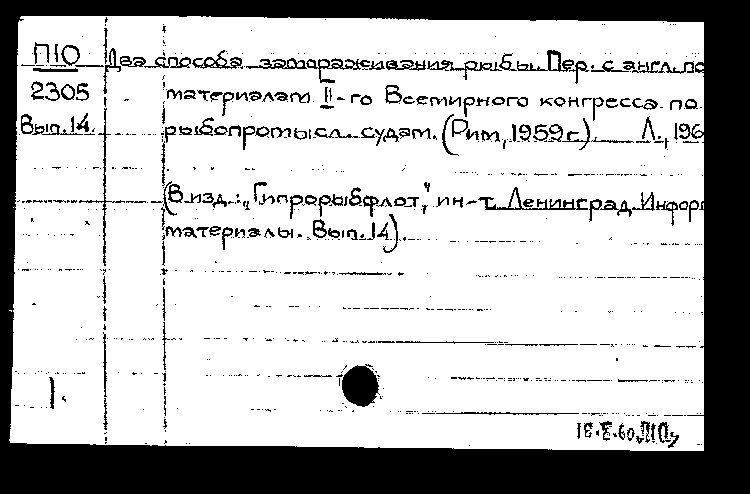 П10 Два способа замораживания рыбы. Пер. с англ. по
2305 материалам II-го Всемирного конгресса по
Вып.14. рыбопромысл. судам. (Рим, 1959 г.). Л., 196
(В изд.: „Гипрорыбфлот“, ин-т. Ленинград. Информ
материалы. Вып. 14).
1.